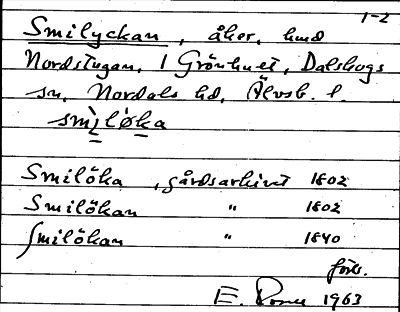 1-2
Smilyckan, åker, hmd
Nordstugan, 1 Grönhult, Dalskogs
sn, Nordals hd, Älvsb. l.
smìlø̀ka
Smilöka, gårdsarkivet 1802
Smilökan " 1802
Smilökan " 1840
förf.
E. 1963